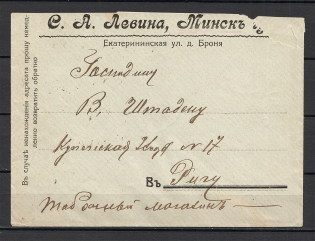 С. А. Левина, Минскъ
Екатерининская ул. д. Броня
Въ случаѣ ненахожденія адресата прошу немед-
ленно возвратить обратно
Господину
В. Штадену
Купеческая № 17
Въ Ригу
Табачный магазинъ